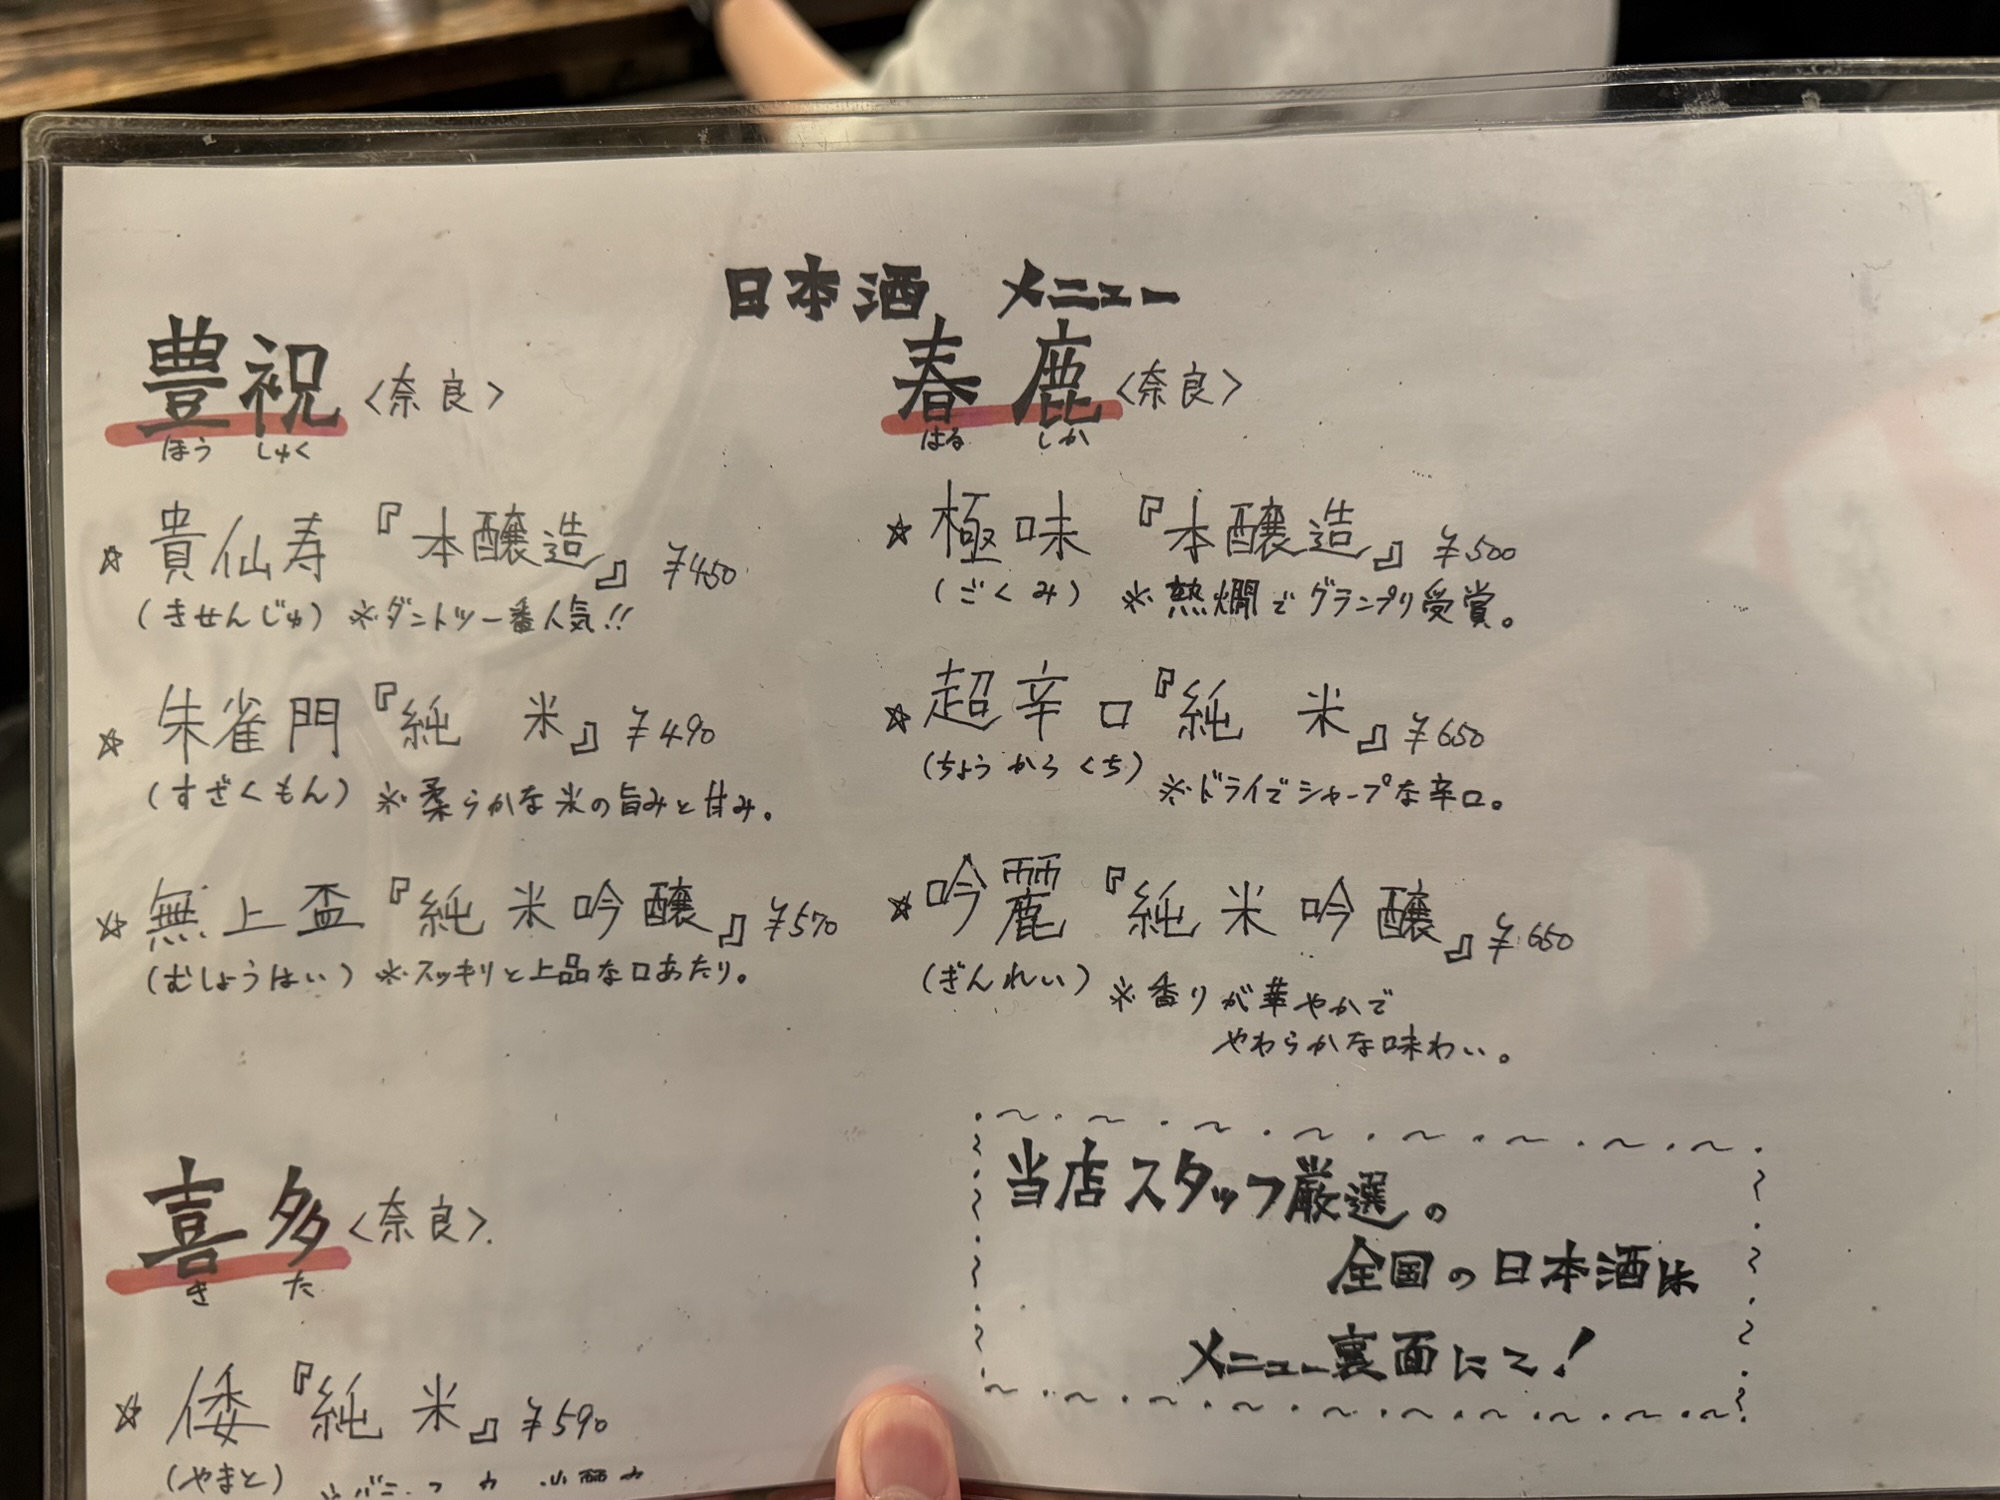 日本酒 メニュー
豊祝 〈奈良〉
ほう しゅく
☆ 貴仙寿『本醸造』 ¥450
(きせんじゅ) ※ダントツ一番人気!!
☆ 朱雀門『純 米』 ¥490
(すざくもん) ※柔らかな米の旨みと甘み。
☆ 無上盃『純米吟醸』 ¥570
(むしょうはい) ※スッキリと上品な口あたり。
喜多〈奈良〉
き た
☆ 倭『純米』 ¥590
(やまと)
春鹿〈奈良〉
はる しか
☆ 極味『本醸造』 ¥500
(ごくみ) ※熱燗でグランプリ受賞。
☆ 超辛口『純 米』 ¥650
(ちょうからくち) ※ドライでシャープな辛口。
☆ 吟麗『純米吟醸』 ¥650
(ぎんれい) ※香りが華やかで
やわらかな味わい。
当店スタッフ厳選の
全国の日本酒は
メニュー裏面にて!